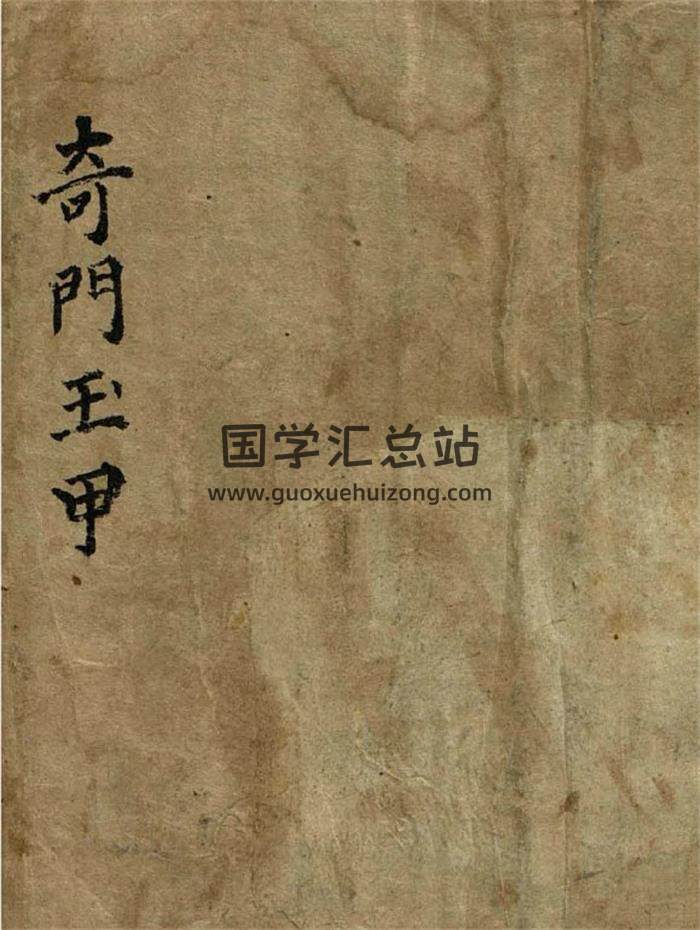 奇門玉甲
国学汇总站
www.guoxuehuizong.com